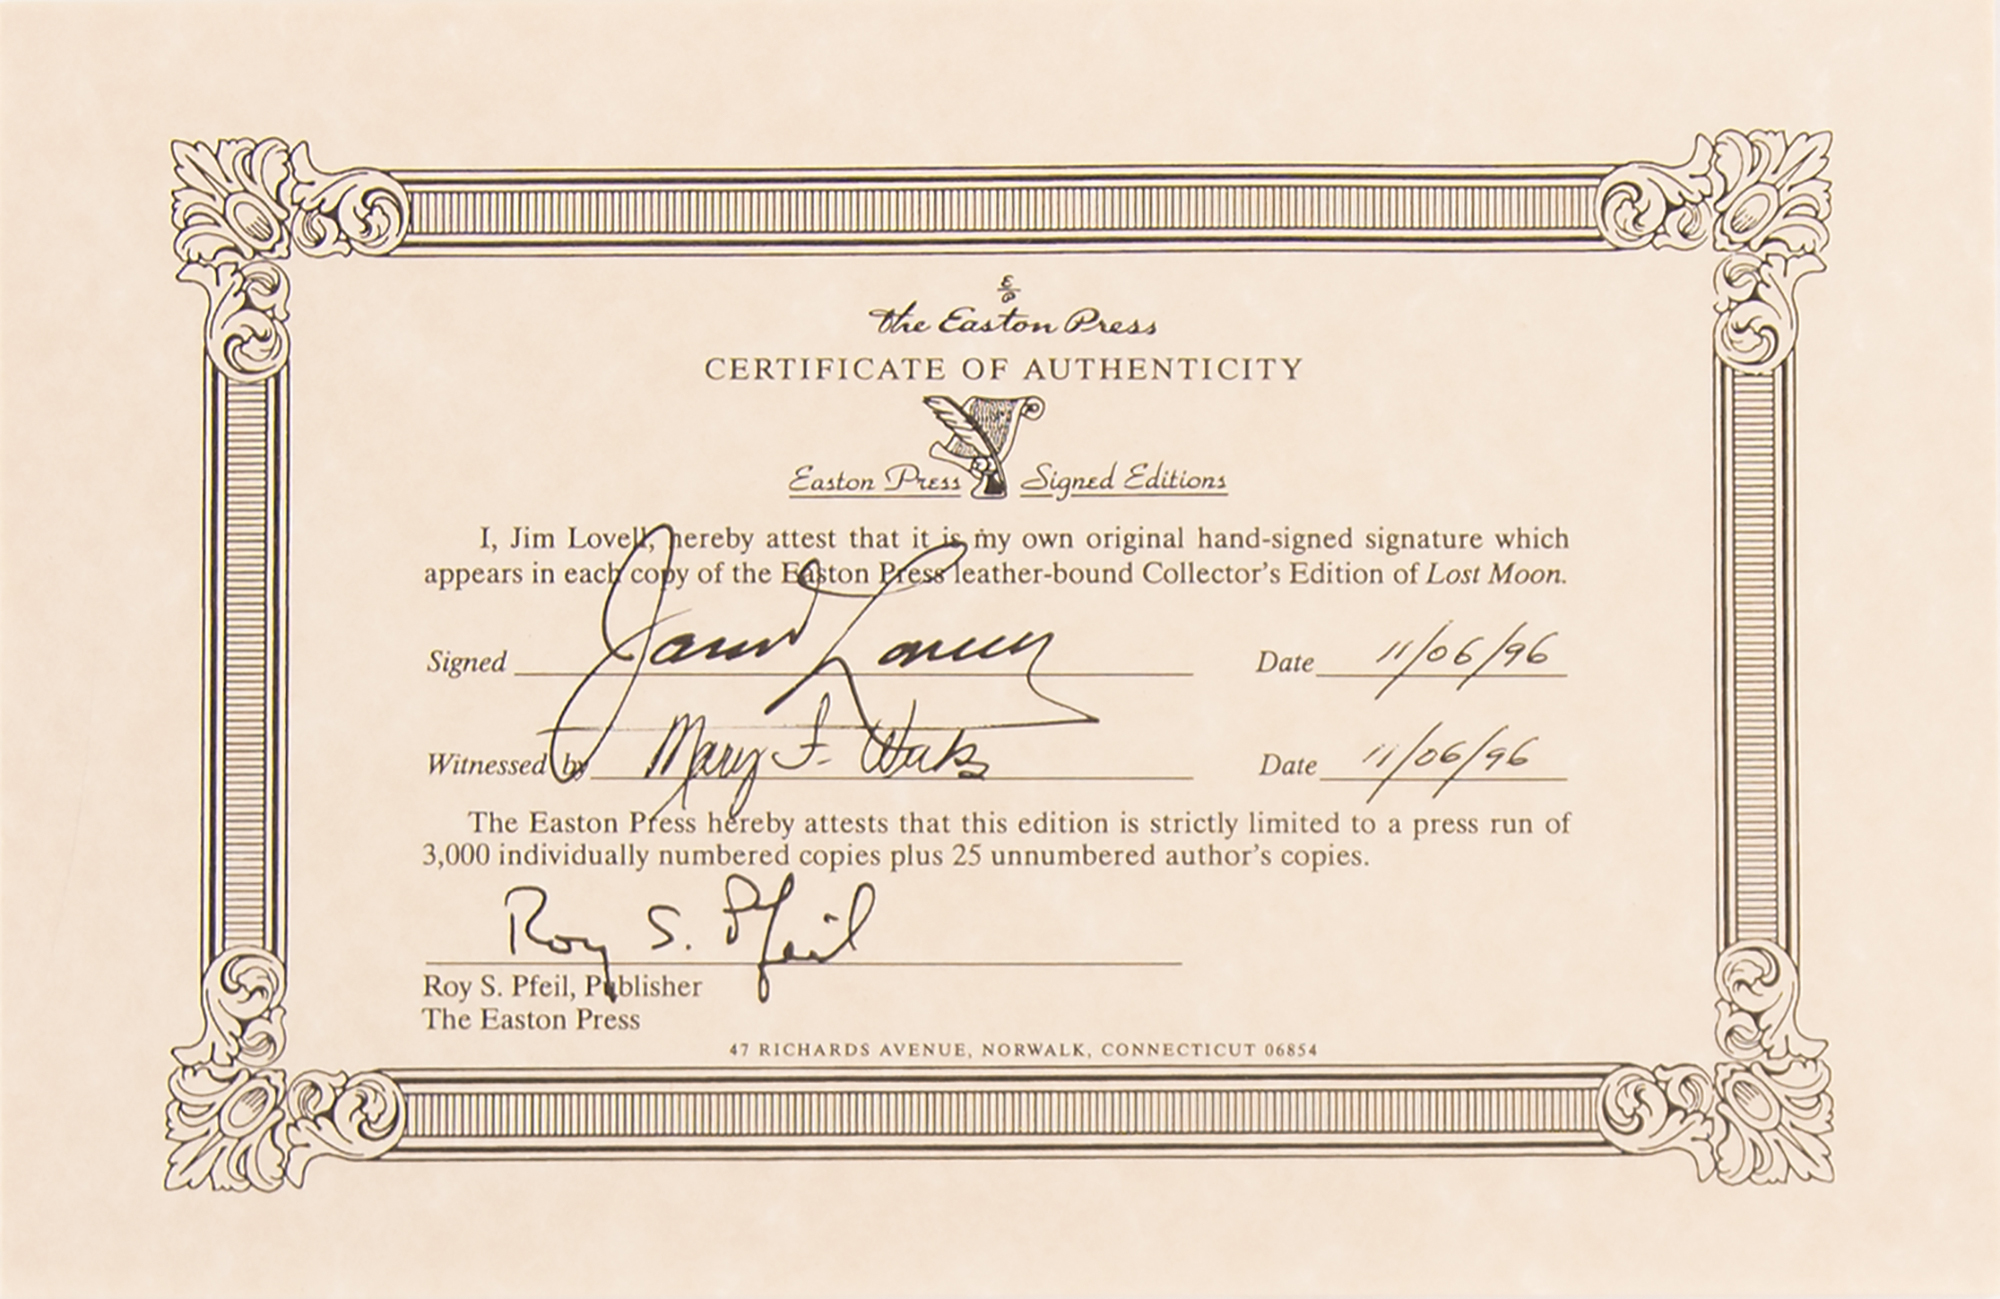 E/P
the Easton Press
CERTIFICATE OF AUTHENTICITY
Easton Press Signed Editions
I, Jim Lovell, hereby attest that it is my own original hand-signed signature which
appears in each copy of the Easton Press leather-bound Collector's Edition of Lost Moon.
Signed James Lovell Date 11/06/96
Witnessed by Mary F. Date 11/06/96
The Easton Press hereby attests that this edition is strictly limited to a press run of
3,000 individually numbered copies plus 25 unnumbered author's copies.
Roy S. Pfeil
Roy S. Pfeil, Publisher
The Easton Press
47 RICHARDS AVENUE, NORWALK, CONNECTICUT 06854